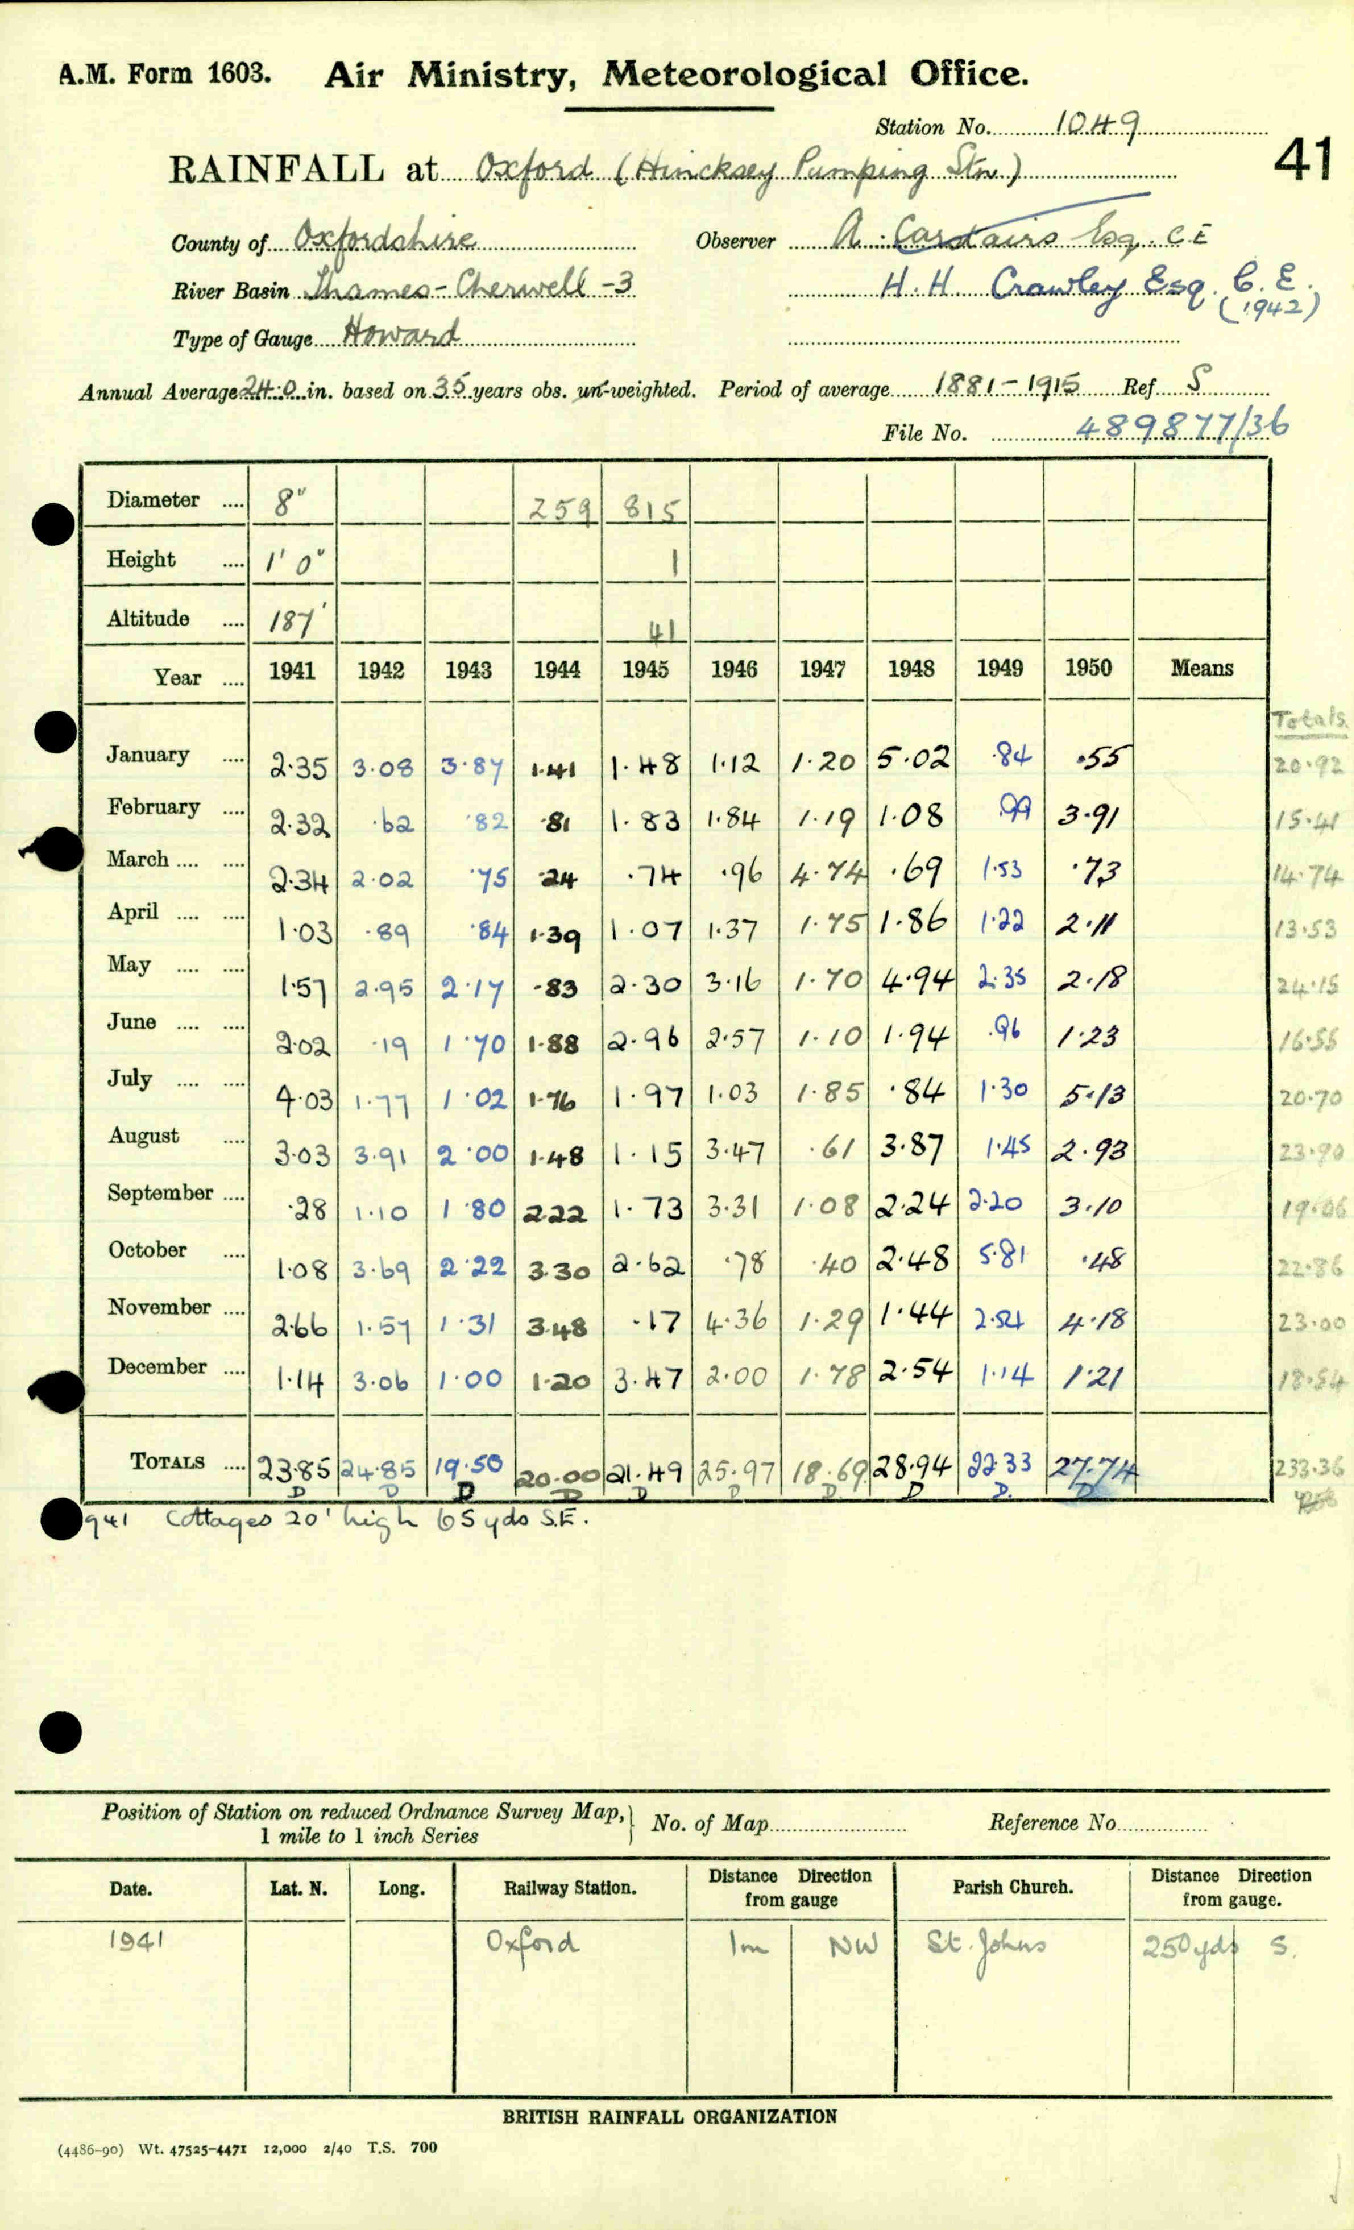 A.M. Form 1603. Air Ministry, Meteorological Office.
Station No. 1049
RAINFALL at Oxford (Hincksey Pumping Stn.) 41
County of Oxfordshire Observer A. Carstairs Esq. C E
River Basin Thames-Cherwell -3 H. H. Crawley Esq. C. E. (1942)
Type of Gauge Howard
Annual Average 24.0 in. based on 35 years obs. un-weighted. Period of average 1881-1915 Ref S
File No. 489877/36
Diameter .... 8" 259 815
Height .... 1' 0" 1
Altitude .... 187' 41
Year .... 1941 1942 1943 1944 1945 1946 1947 1948 1949 1950 Means
Totals
January .... 2.35 3.08 3.87 1.41 1.48 1.12 1.20 5.02 .84 .55 20.92
February .... 2.32 .62 .82 .81 1.83 1.84 1.19 1.08 .99 3.91 15.41
March .... .... 2.34 2.02 .75 .24 .74 .96 4.74 .69 1.53 .73 14.74
April .... .... 1.03 .89 .84 1.39 1.07 1.37 1.75 1.86 1.22 2.11 13.53
May .... .... 1.57 2.95 2.17 .83 2.30 3.16 1.70 4.94 2.35 2.18 24.15
June .... .... 2.02 .19 1.70 1.88 2.96 2.57 1.10 1.94 .96 1.23 16.55
July .... .... 4.03 1.77 1.02 1.76 1.97 1.03 1.85 .84 1.30 5.13 20.70
August .... 3.03 3.91 2.00 1.48 1.15 3.47 .61 3.87 1.45 2.93 23.90
September .... .28 1.10 1.80 2.22 1.73 3.31 1.08 2.24 2.20 3.10 19.06
October .... 1.08 3.69 2.22 3.30 2.62 .78 .40 2.48 5.81 .48 22.86
November .... 2.66 1.57 1.31 3.48 .17 4.36 1.29 1.44 2.54 4.18 23.00
December .... 1.14 3.06 1.00 1.20 3.47 2.00 1.78 2.54 1.14 1.21 18.54
TOTALS .... 23.85 24.85 19.50 20.00 21.49 25.97 18.69 28.94 22.33 27.74 233.36
D D D D D D D D D. D
941 Cottages 20' high 65 yds S.E.
Position of Station on reduced Ordnance Survey Map, 1 mile to 1 inch Series No. of Map Reference No
Date. Lat. N. Long. Railway Station. Distance Direction from gauge Parish Church. Distance Direction from gauge.
1941 Oxford 1m NW St. Johns 250 yds S.
BRITISH RAINFALL ORGANIZATION
(4486-90) Wt. 47525-4471 12,000 2/40 T.S. 700